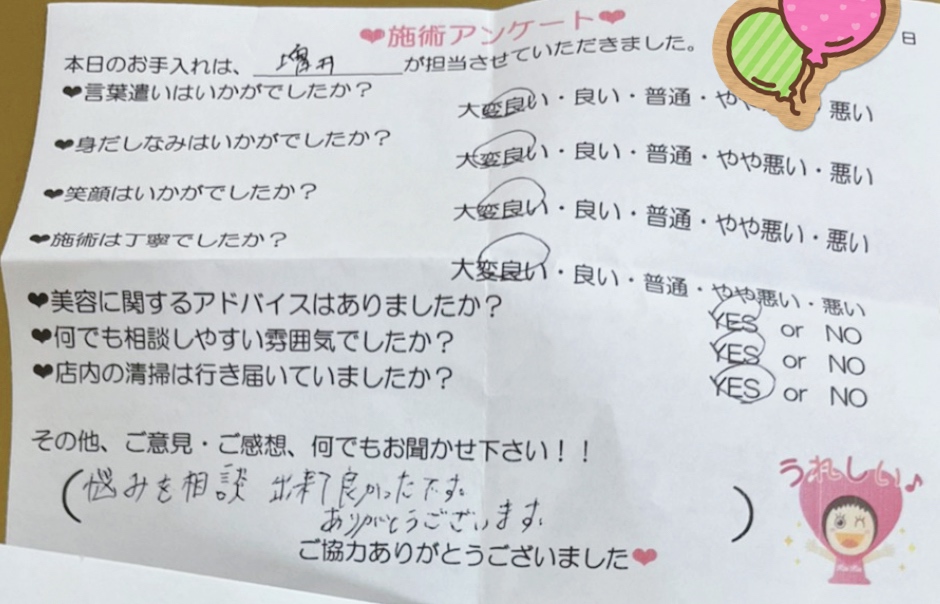 ❤施術アンケート❤
日
本日のお手入れは、 が担当させていただきました。
❤言葉遣いはいかがでしたか? 大変良い・良い・普通・やや ・悪い
❤身だしなみはいかがでしたか? 大変良い・良い・普通・やや悪い・悪い
❤笑顔はいかがでしたか? 大変良い・良い・普通・やや悪い・悪い
❤施術は丁寧でしたか? 大変良い・良い・普通・やや悪い・悪い
❤美容に関するアドバイスはありましたか? YES or NO
❤何でも相談しやすい雰囲気でしたか? YES or NO
❤店内の清掃は行き届いていましたか? YES or NO
その他、ご意見・ご感想、何でもお聞かせ下さい!!
(悩みを相談 出来て良かったです。
ありがとうございます。)
ご協力ありがとうございました❤
うれしい♪